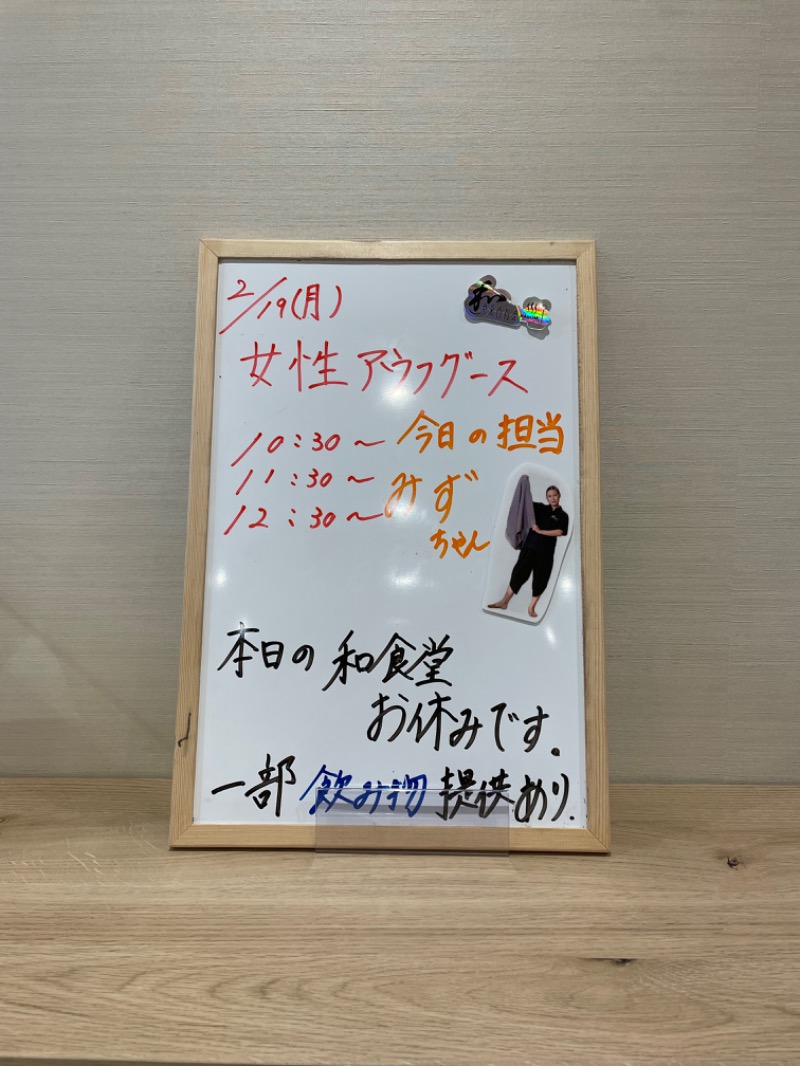 2/19(月)
女性アウフグース
10:30~ 今日の担当
11:30~ みず
12:30~ ちゃん
本日の 和食堂
お休みです。
一部 飲み物 提供あり.